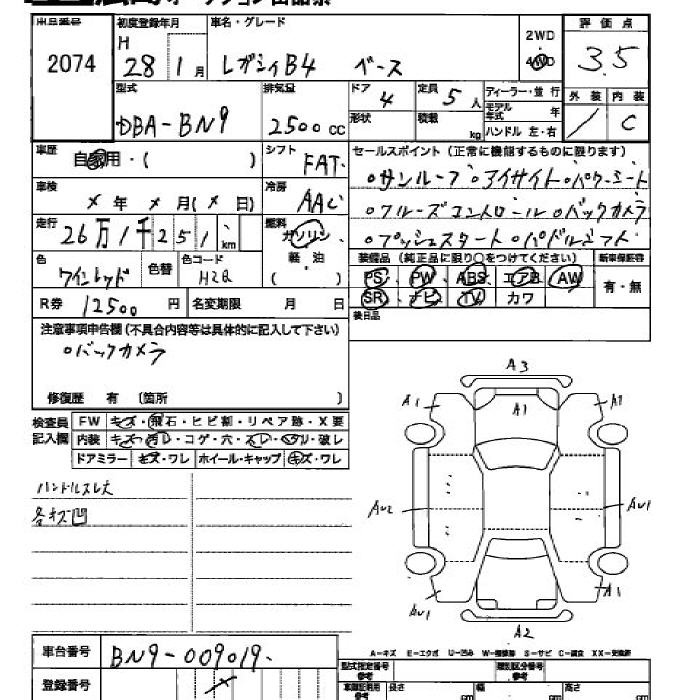 広島オークション出品票
出品番号 初度登録年月 車名・グレード 2WD 4WD 評価点
2074 H 28 1月 レガシィB4 ベース 3.5
型式 排気量 ドア 定員 ディーラー・並行 外装 内装
DBA-BN9 2500 CC 4 5人 モデル年式 年 / C
形状 積載 kg ハンドル 左・右
車歴 自家用・( ) シフト FAT セールスポイント (正常に機能するものに限ります)
車検 × 年 × 月(× 日) 冷房 AAC ○サンルーフ ○アイサイト ○パワーシート
走行 26万1千251 km 燃料 ガソリン ○クルーズコントロール ○バックカメラ
軽油 ( ) ○プッシュスタート ○パドルシフト
色 ワインレッド 色替 色コード H2Q 装備品 (純正品に限り○をつけてください) 新車保証書
PS PW ABS エアB AW 有・無
R券 12500円 名変期限 月 日 SR ナビ TV カワ
後日品
注意事項申告欄 (不具合内容等は具体的に記入して下さい)
○バックカメラ
修復歴 有 〔箇所 〕
検査員記入欄 FW キズ・飛石・ヒビ割・リペア跡・X要
内装 キズ・汚レ・コゲ・穴・スレ・ヘタリ・破レ
ドアミラー キズ・ワレ ホイール・キャップ キズ・ワレ
ハンドルスレ大
各キズ凹
A3
A1 A1 A1
AU2 AU1
AU1 A1
A2
A-キズ E-エクボ U-凹み W-補修跡 S-サビ C-腐食 XX-交換済
車台番号 BN9-009019
登録番号
型式指定番号 参考 類別区分番号 参考
長さ cm 幅 cm 高さ cm